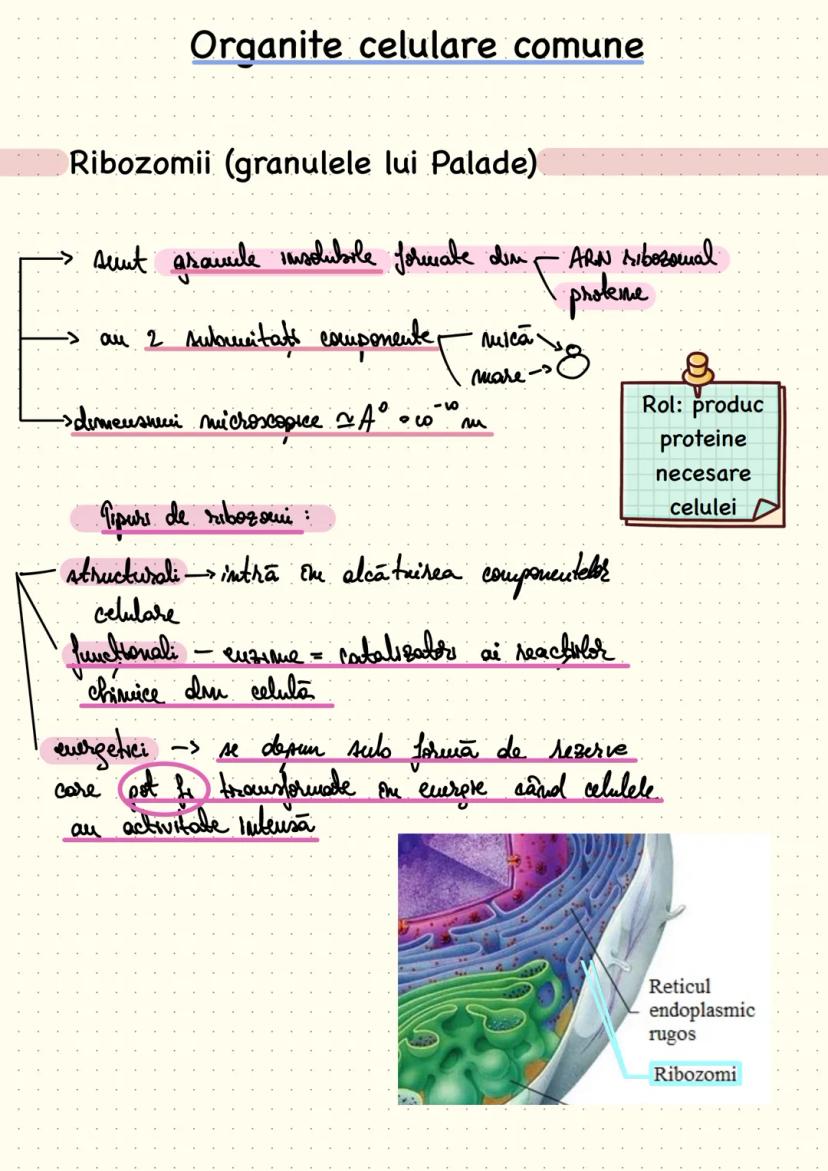 Organite celulare comune
Ribozomii (granulele lui Palade)
sunt granule insolubile formate din ARN ribozomal
proteine
au 2 subunități componente mică
mare
dimensiuni microscopice ≃ A° = 10⁻¹⁰ m
Rol: produc
proteine
necesare
celulei
Tipuri de ribozomi :
structurali → intră în alcătuirea componentelor
celulare
funcționali – enzime = catalizatori ai reacțiilor
chimice din celulă
energetici -> se depun sub formă de rezerve
care pot fi transformate în energie când celulele
au activitate intensă
Reticul
endoplasmic
rugos
Ribozomi